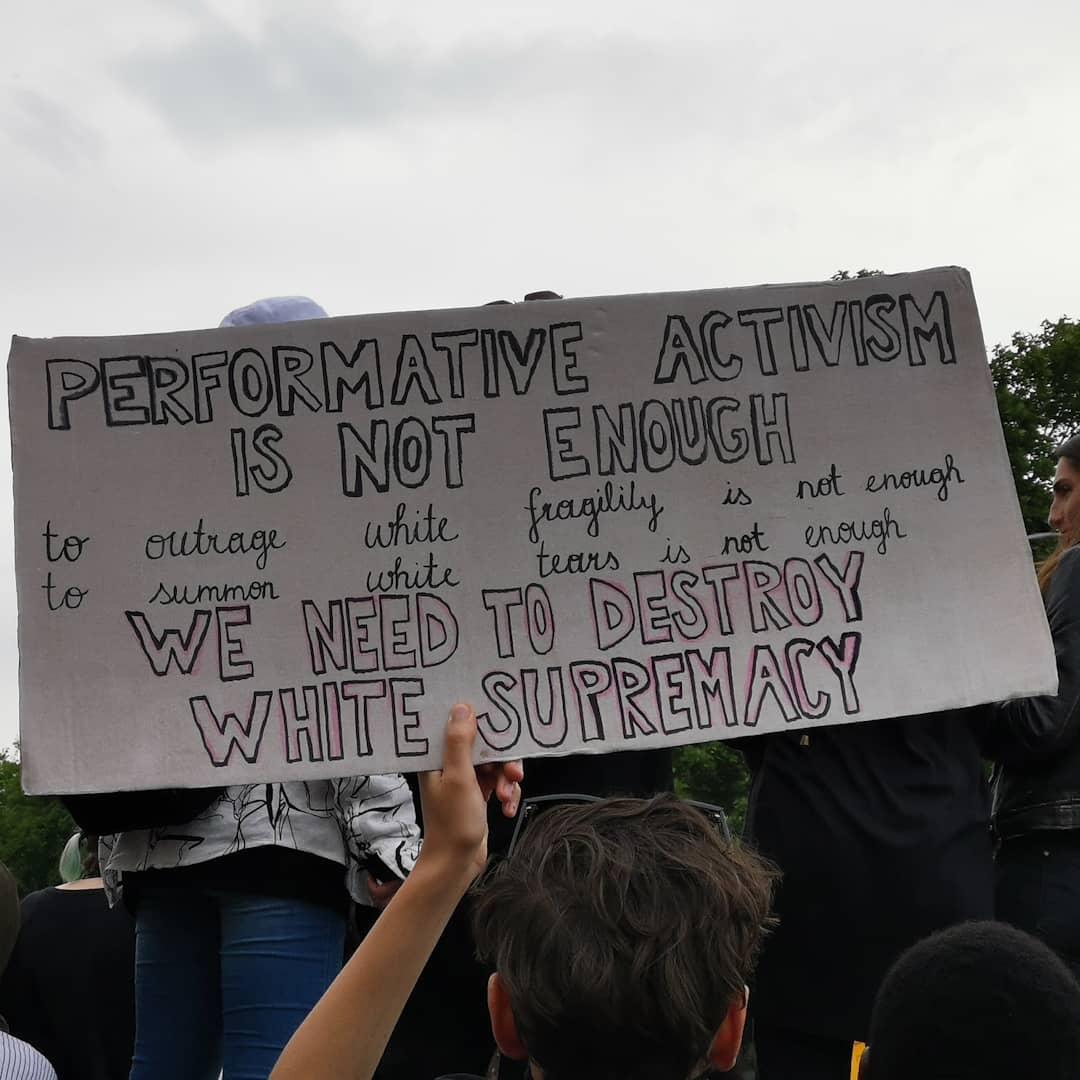 PERFORMATIVE ACTIVISM
IS NOT ENOUGH
to outrage white fragilily is not enough
to summon white tears is not enough
WE NEED TO DESTROY
WHITE SUPREMACY